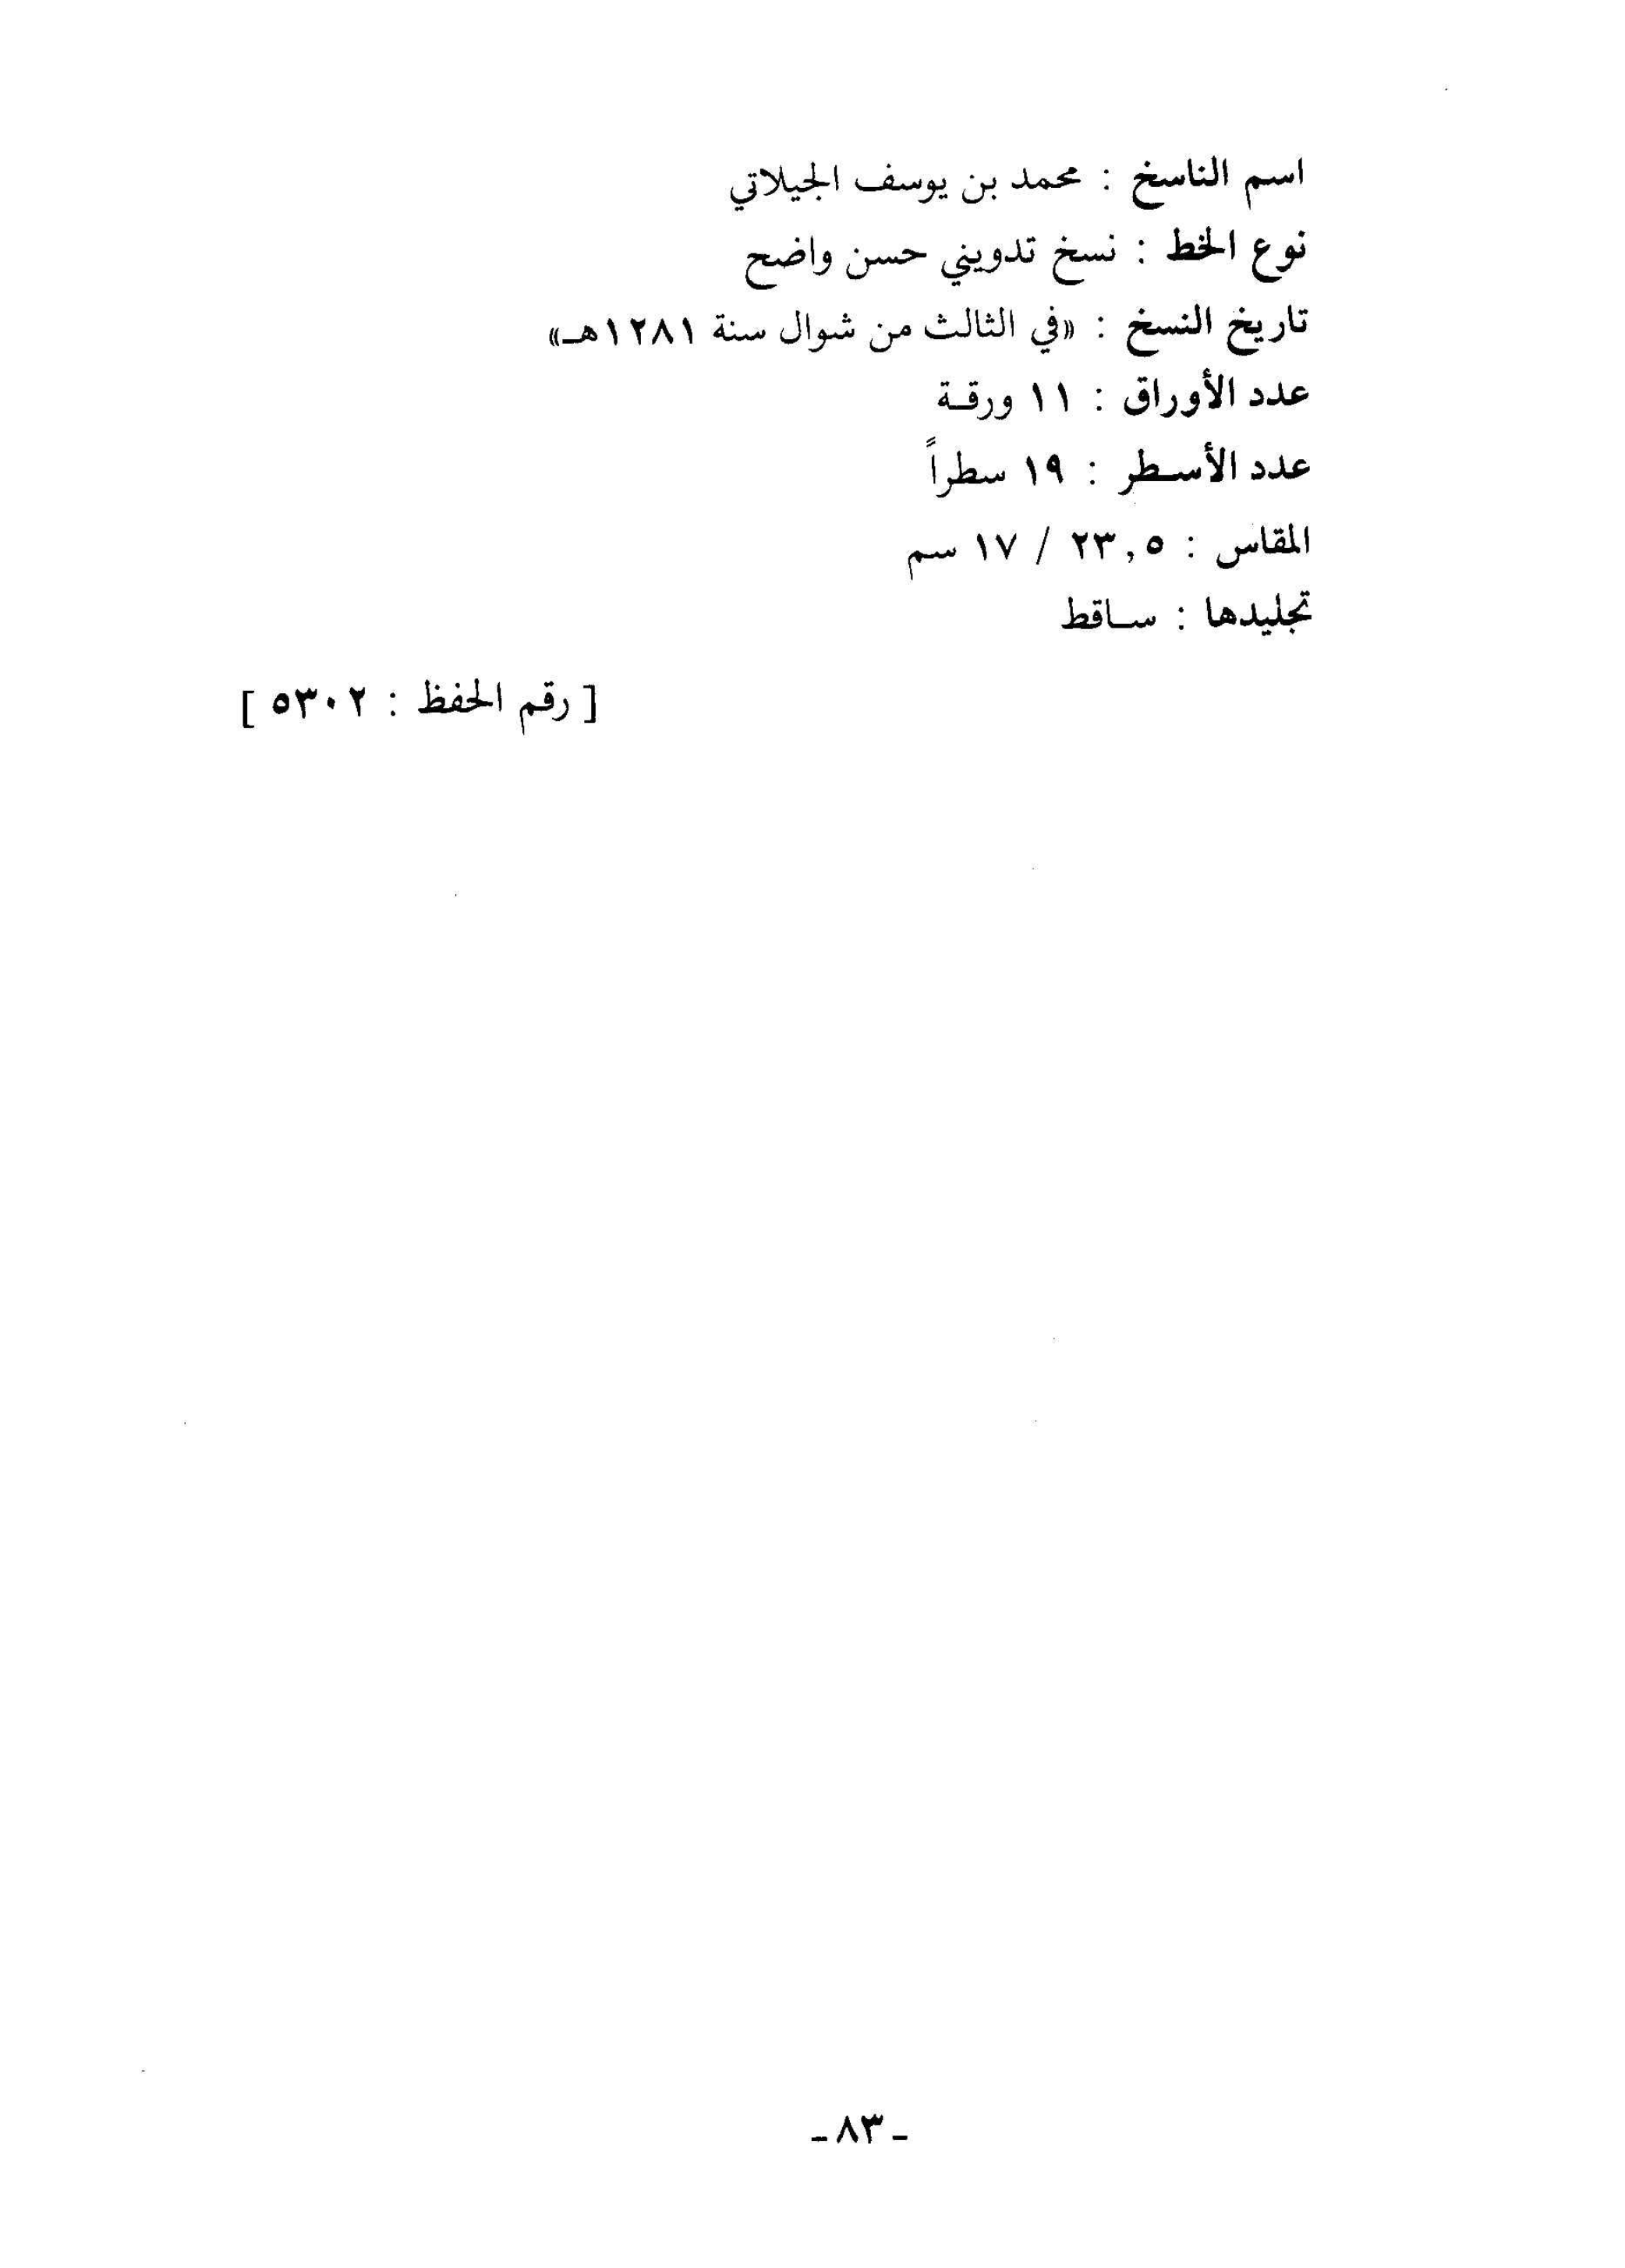 اسم الناسخ : محمد بن يوسف الجيلاتي
نوع الخط : نسخ تدويني حسن واضح
تاريخ النسخ : «في الثالث من شوال سنة ١٢٨١هـ»
عدد الأوراق : ١١ ورقـة
عدد الأسـطر : ١٩ سطراً
المقاس : ٢٣,٥ / ١٧ سم
تجليدها : سـاقط
[ رقم الحفظ : ٥٣٠٢ ]
- ٨٣ -